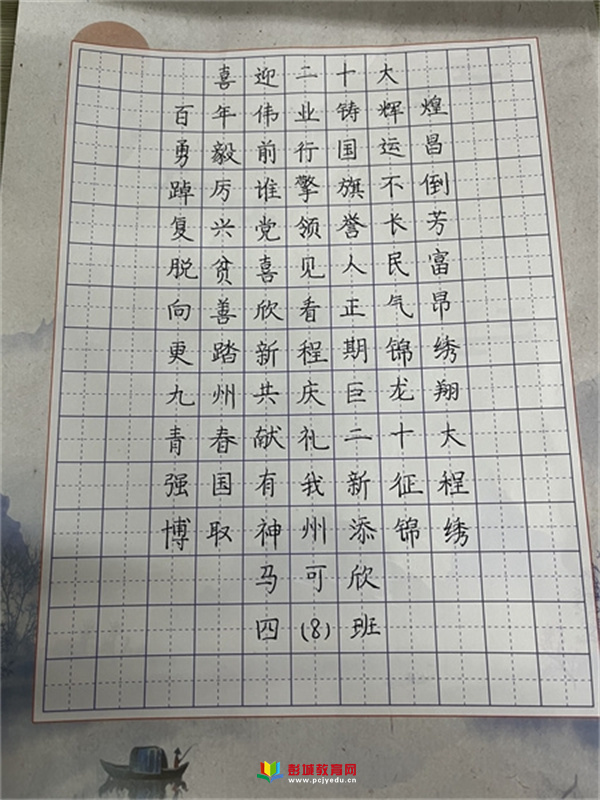 喜迎二十大
百年伟业铸辉煌
勇毅前行国运昌
踔厉谁擎旗不倒
复兴党领誉长芳
脱贫喜见人民富
向善欣看正气昂
更踏新程期锦绣
九州共庆巨龙翔
青春献礼二十大
强国有我新征程
博取神州添锦绣
马可欣
四(8)班
彭城教育网
www.pcjyedu.cn